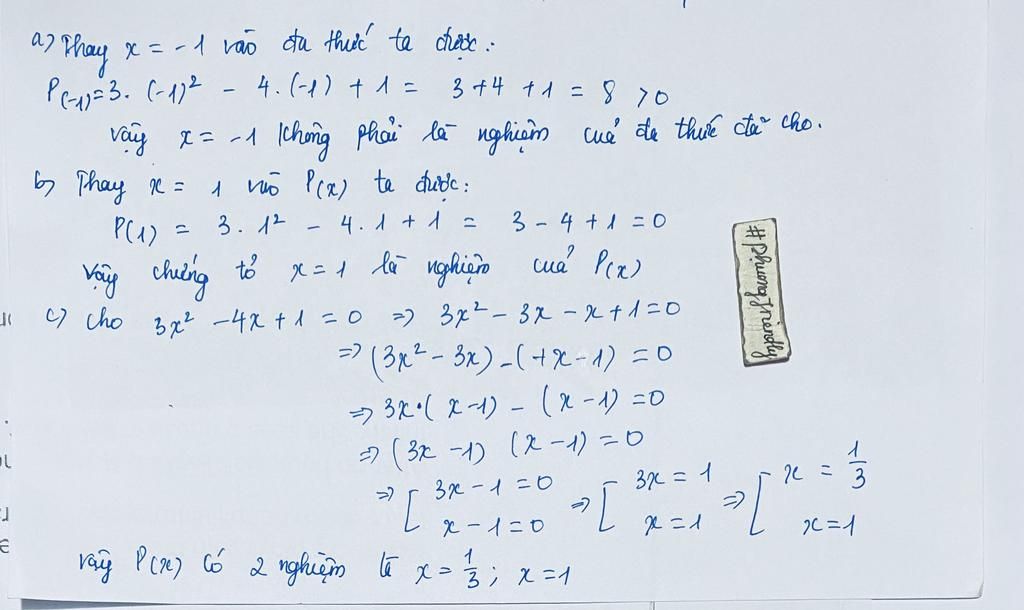 a) Thay x = -1 vào đa thức ta được:
P(-1) = 3. (-1)² - 4. (-1) + 1 = 3 + 4 + 1 = 8 > 0
Vậy x = -1 không phải là nghiệm cuả đa thức đã cho.
b) Thay x = 1 vào P(x) ta được:
P(1) = 3. 1² - 4. 1 + 1 = 3 - 4 + 1 = 0
Vậy chứng tỏ x = 1 là nghiệm cuả P(x)
c) Cho 3x² - 4x + 1 = 0 => 3x² - 3x - x + 1 = 0
=> (3x² - 3x) - (+x - 1) = 0
=> 3x.(x - 1) - (x - 1) = 0
=> (3x - 1) (x - 1) = 0
=> [ 3x - 1 = 0 => [ 3x = 1 => [ x = 1/3
x - 1 = 0 x = 1 x = 1
Vậy P(x) có 2 nghiệm là x = 1/3 ; x = 1
#phuongfriendly